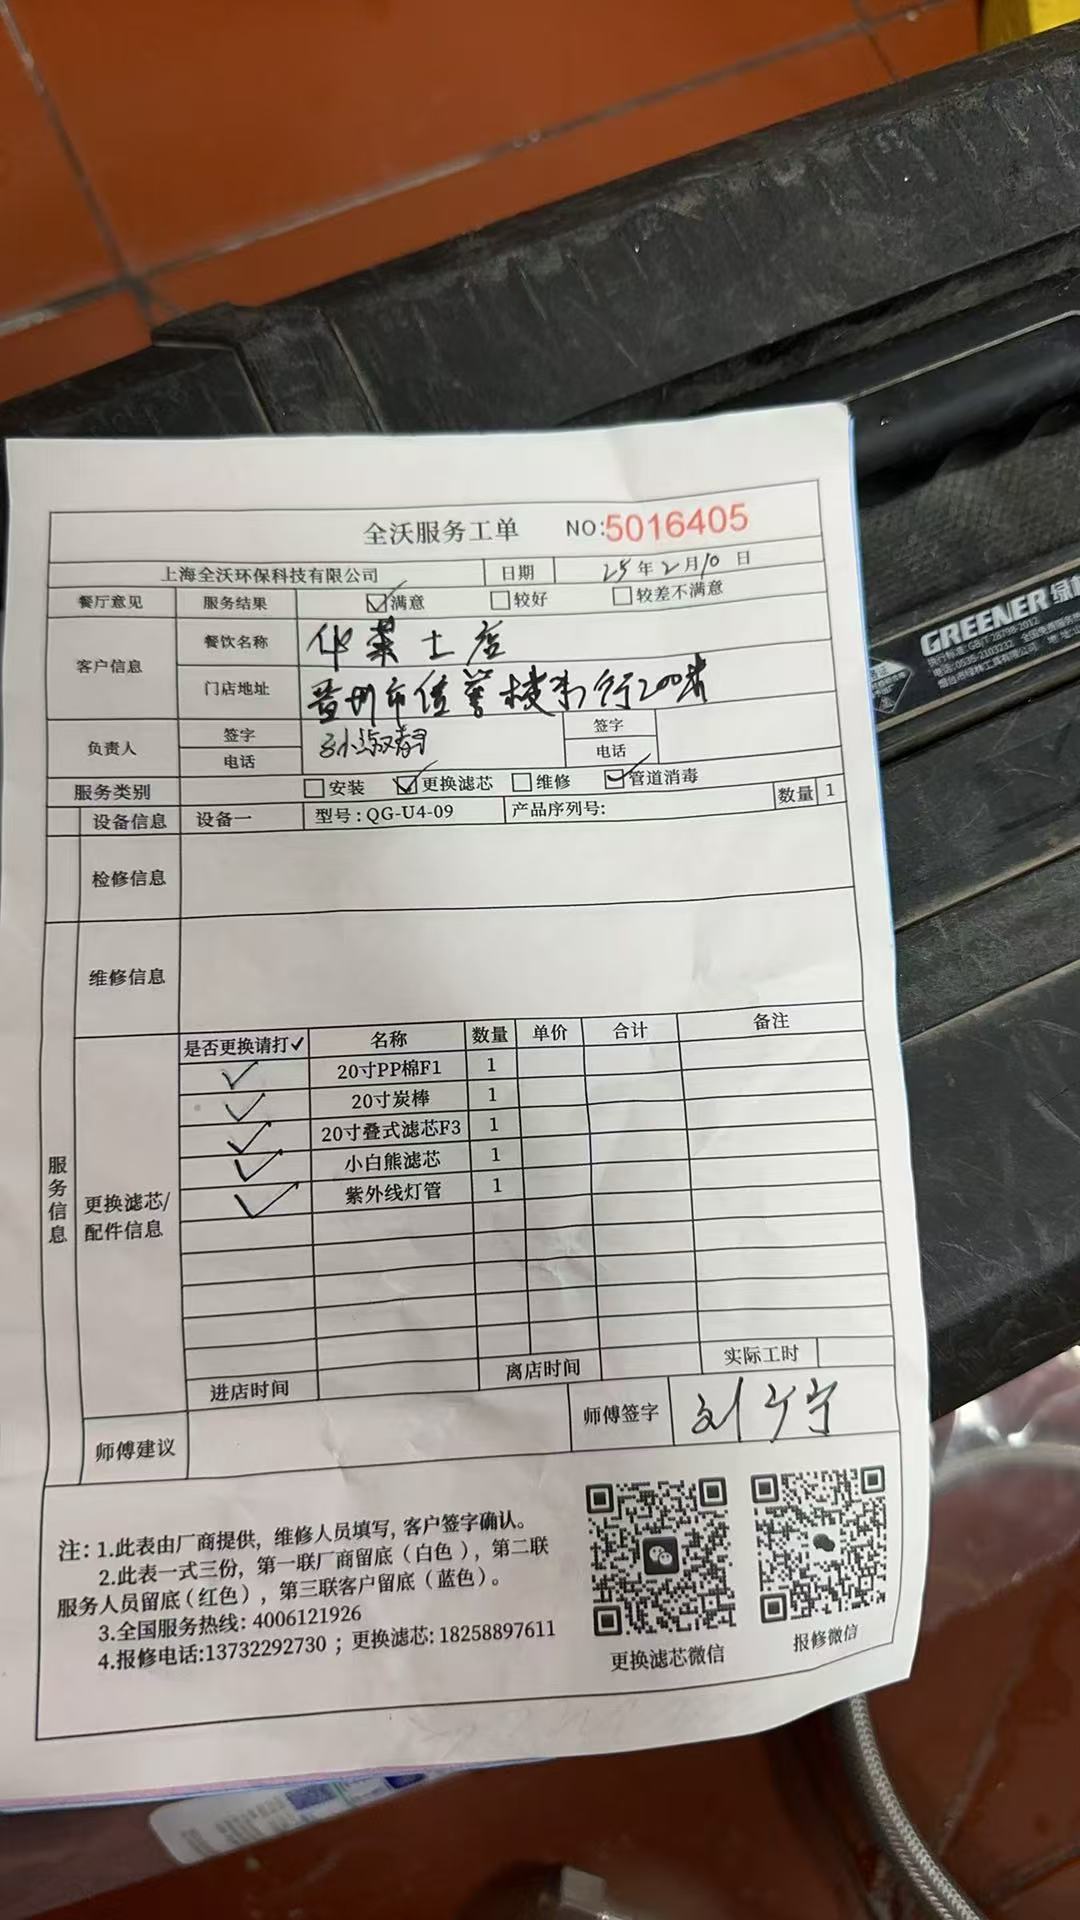 全沃服务工单 NO:5016405
上海全沃环保科技有限公司 日期 25年2月10日
餐厅意见 服务结果 ☑满意 □较好 □较差不满意
客户信息 餐饮名称 华莱士店
门店地址 晋州市信誉楼东行200米
负责人 签字 签字
电话 电话
服务类别 □安装 ☑更换滤芯 □维修 ☑管道消毒
设备信息 设备一 型号:QG-U4-09 产品序列号: 数量 1
检修信息
维修信息
服务信息
更换滤芯/配件信息
是否更换请打✓ 名称 数量 单价 合计 备注
✓ 20寸PP棉F1 1
✓ 20寸炭棒 1
✓ 20寸叠式滤芯F3 1
✓ 小白熊滤芯 1
✓ 紫外线灯管 1
进店时间 离店时间 实际工时
师傅建议 师傅签字 刘宁
注:1.此表由厂商提供,维修人员填写,客户签字确认。
2.此表一式三份,第一联厂商留底(白色),第二联
服务人员留底(红色),第三联客户留底(蓝色)。
3.全国服务热线:4006121926
4.报修电话:13732292730;更换滤芯:18258897611
更换滤芯微信 报修微信
GREENER 绿林
执行标准:GB/T 28798-2012
电话:0535-2103232